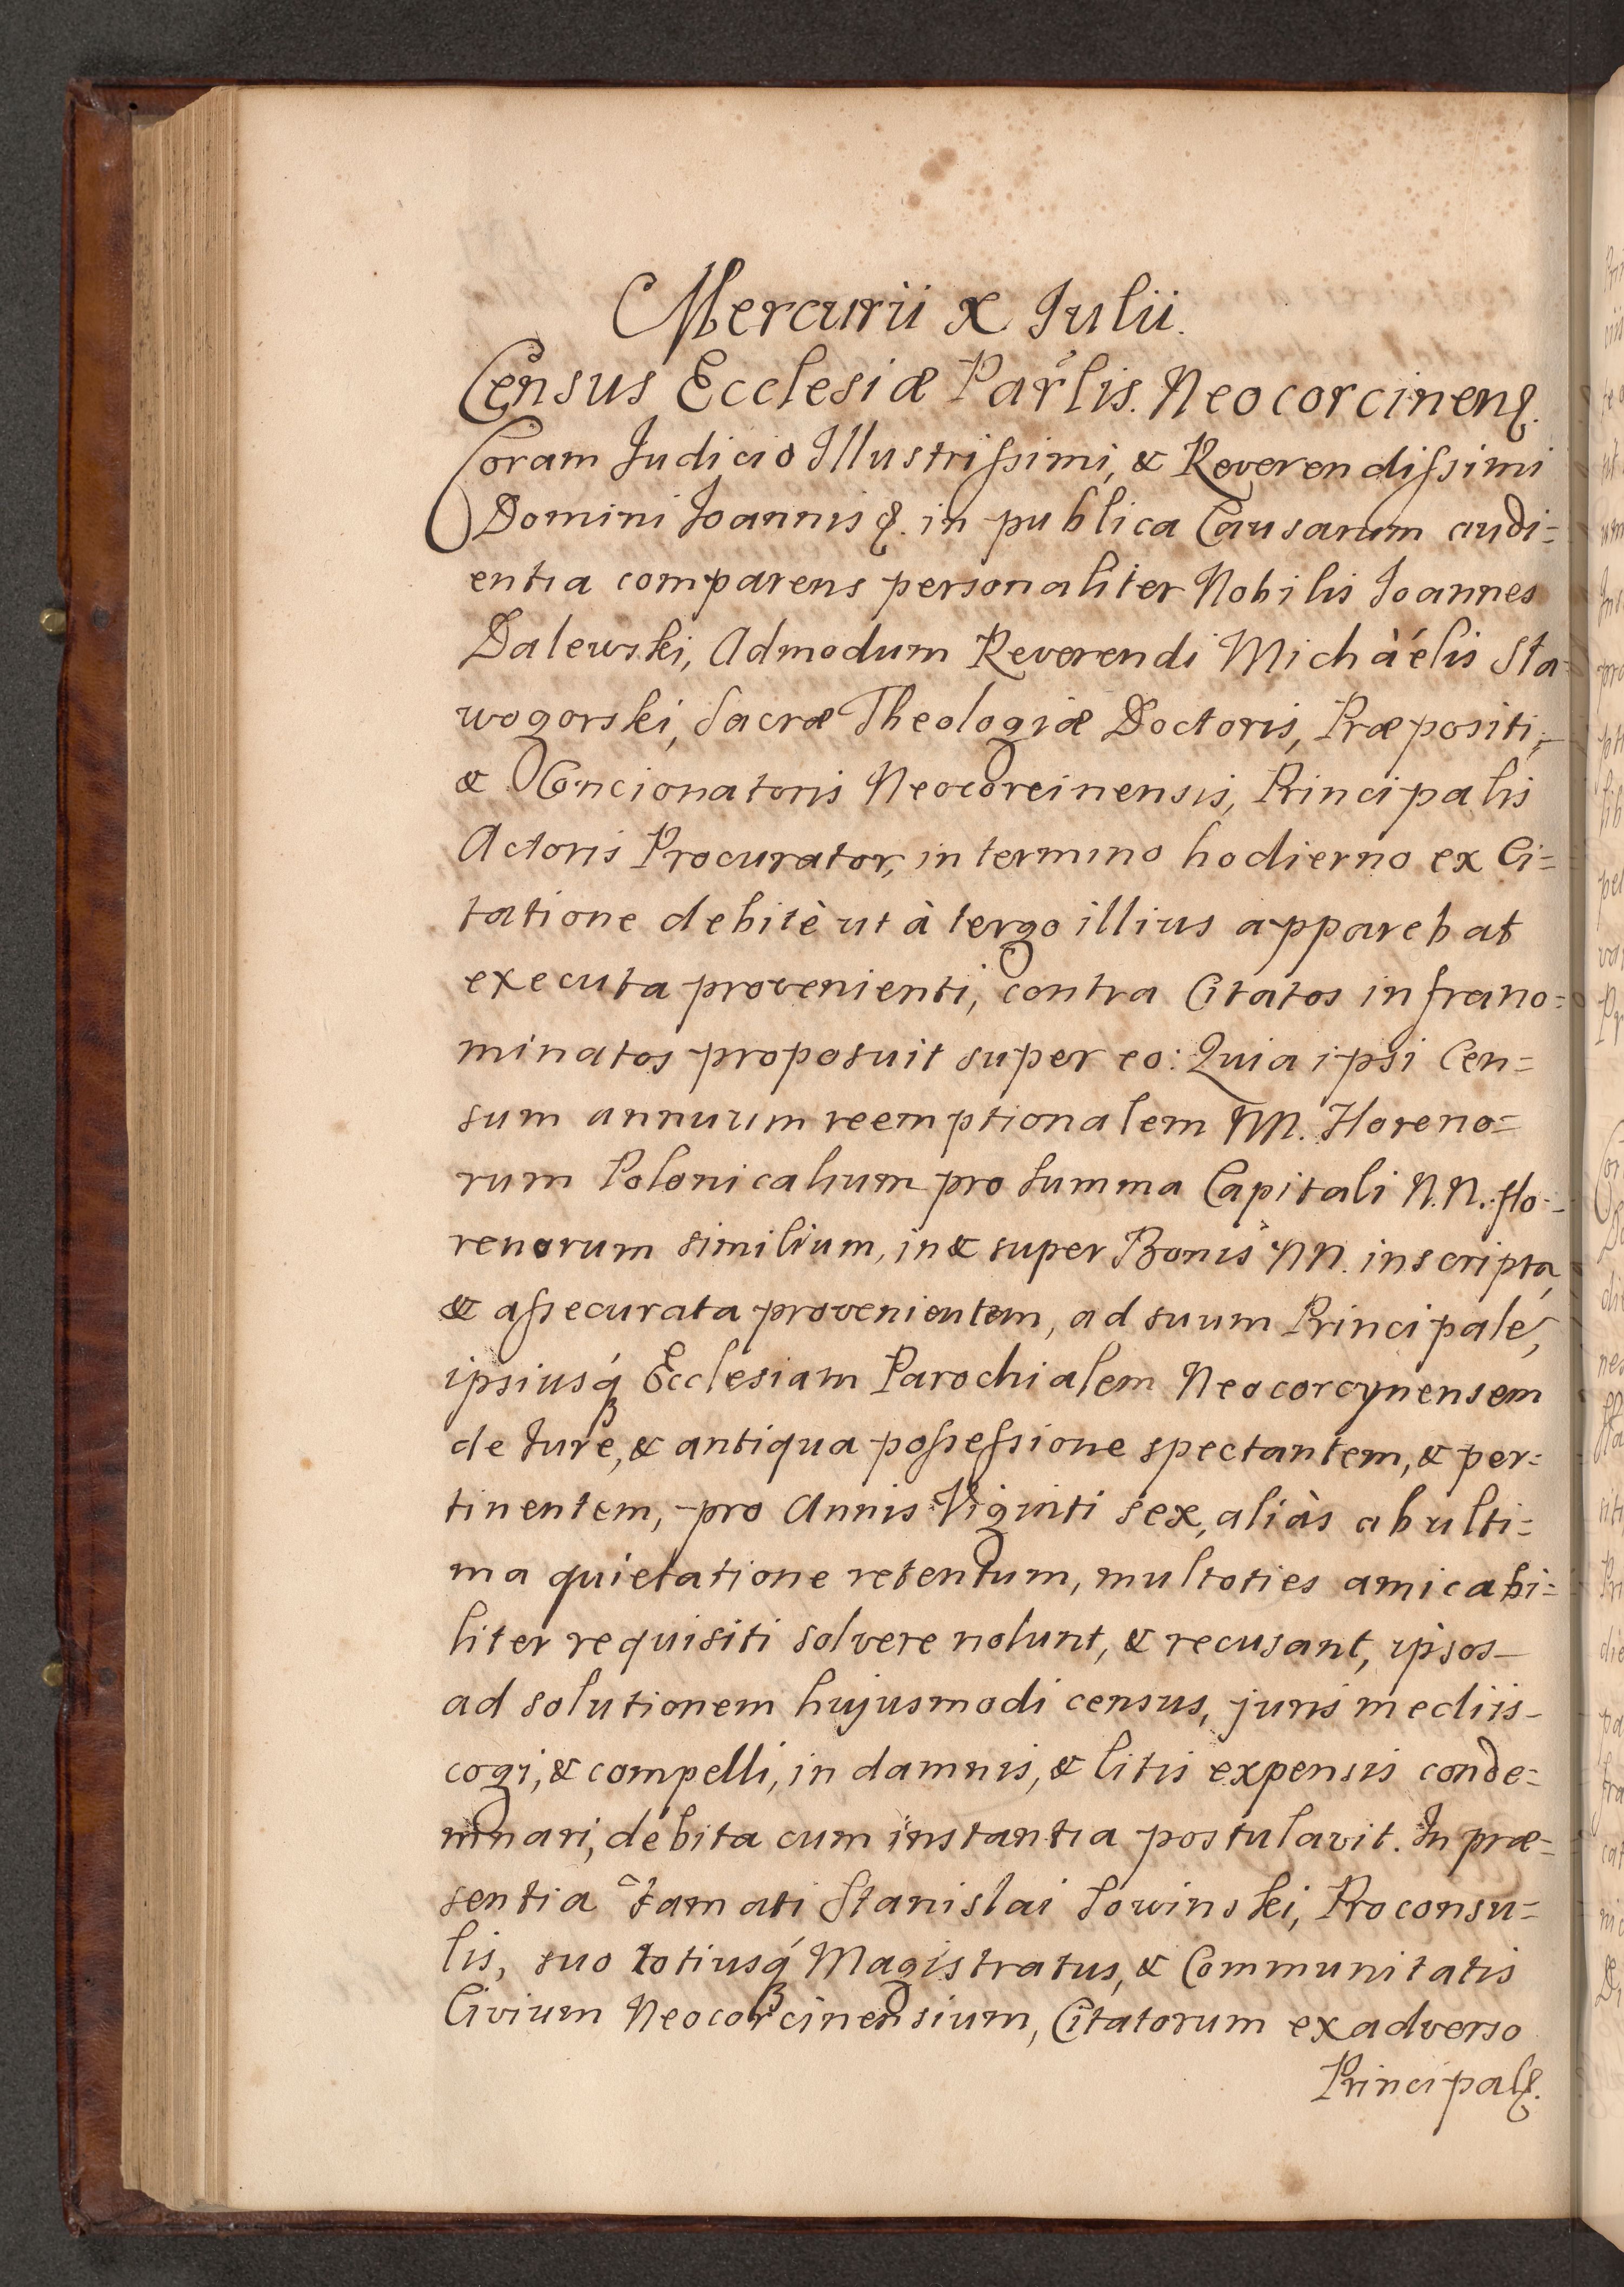 Mercurii X Julii.
Census Ecclesiæ Par̃lis. Neocorcinenꝭ.
Coram Judicio Illustrissimi, & Reverendissimi
Domini Joannis ꝭ. in publica Causarum audi=
entia comparens personaliter Nobilis Joannes
Dalewski, Admodum Reverendi Michàélis Sta=
wogorski, Sacræ Theologiæ Doctoris, Præpositi,
& Concionatoris Neocorcinensis, Principalis
Actoris Procurator, in termino hodierno ex Ci=
tatione debitè ut à tergo illius apparebat
executa provenienti, contra Citatos infrano=
minatos proposuit super eo: Quia ipsi Cen=
sum annuum reemptionalem NN. Floreno=
rum Polonicalium pro summa Capitali N.N. flo=
renorum similium, in & super Bonis NN. inscripta,
& assecurata provenientem, ad suum Principalẽ,
ipsiusq́ꝫ Ecclesiam Parochialem Neocorcynensem
de Jure, & antiqua possessione spectantem, & per=
tinentem, pro Annis Viginti sex, aliàs ab ulti=
ma quietatione retentum, multoties amicabi=
liter requisiti solvere nolunt, & recusant, ipsos
ad solutionem hujusmodi census, juris mediis
cogi, & compelli, in damnis, & litis expensis conde=
mnari, debita cum instantia postulavit. In præ=
sentia Famati Stanislai Sowinski, Proconsu=
lis, suo totiusq́ꝫ Magistratus, & Communitatis
Civium Neocorcinensium, Citatorum ex adverso
Principalꝭ.